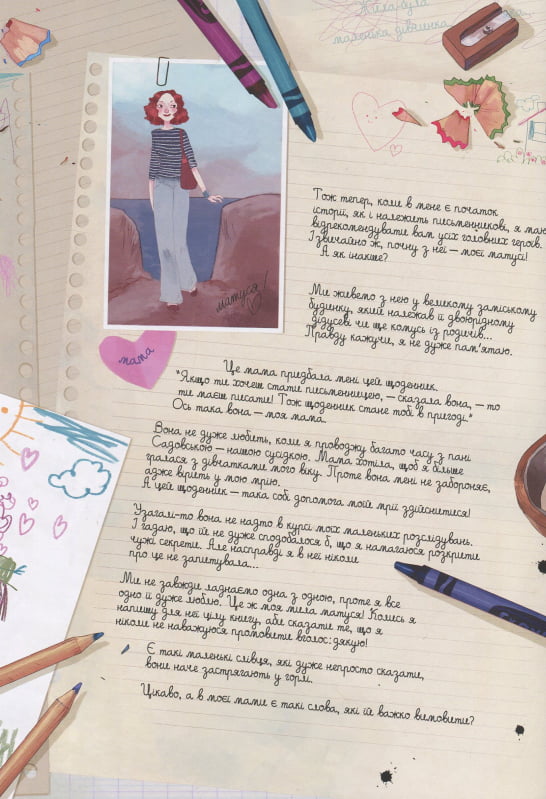 Жила-була
маленька дівчинка
матуся!
мама
Тож тепер, коли в мене є початок
історії, як і належить письменникові, я маю
відрекомендувати вам усіх головних героїв.
І звичайно ж, почну з неї — моєї матусі!
А як інакше?
Ми живемо з нею у великому заміському
будинку, який належав її двоюрідному
дідусеві чи ще комусь із родичів...
Правду кажучи, я не дуже пам'ятаю.
Це мама придбала мені цей щоденник.
"Якщо ти хочеш стати письменницею, — сказала вона, — то
ти маєш писати! Тож щоденник стане тобі в пригоді."
Ось така вона — моя мама.
Вона не дуже любить, коли я проводжу багато часу з пані
Садовською — нашою сусідкою. Мама хотіла, щоб я більше
гралася з дівчатками мого віку. Проте вона мені не забороняє,
адже вірить у мою мрію.
А цей щоденник — така собі допомога моїй мрії здійснитися!
Узагалі-то вона не надто в курсі моїх маленьких розслідувань.
І гадаю, що їй не дуже сподобалося б, що я намагаюся розкрити
чужі секрети. Але насправді я в неї ніколи
про це не запитувала...
Ми не завжди ладнаємо одна з одною, проте я все
одно її дуже люблю. Це ж моя мила матуся! Колись я
напишу для неї цілу книгу, аби сказати те, що я
ніколи не наважуюся промовити вголос: дякую!
Є такі маленькі слівця, які дуже непросто сказати,
вони наче застрягають у горлі.
Цікаво, а в моєї мами є такі слова, які їй важко вимовити?